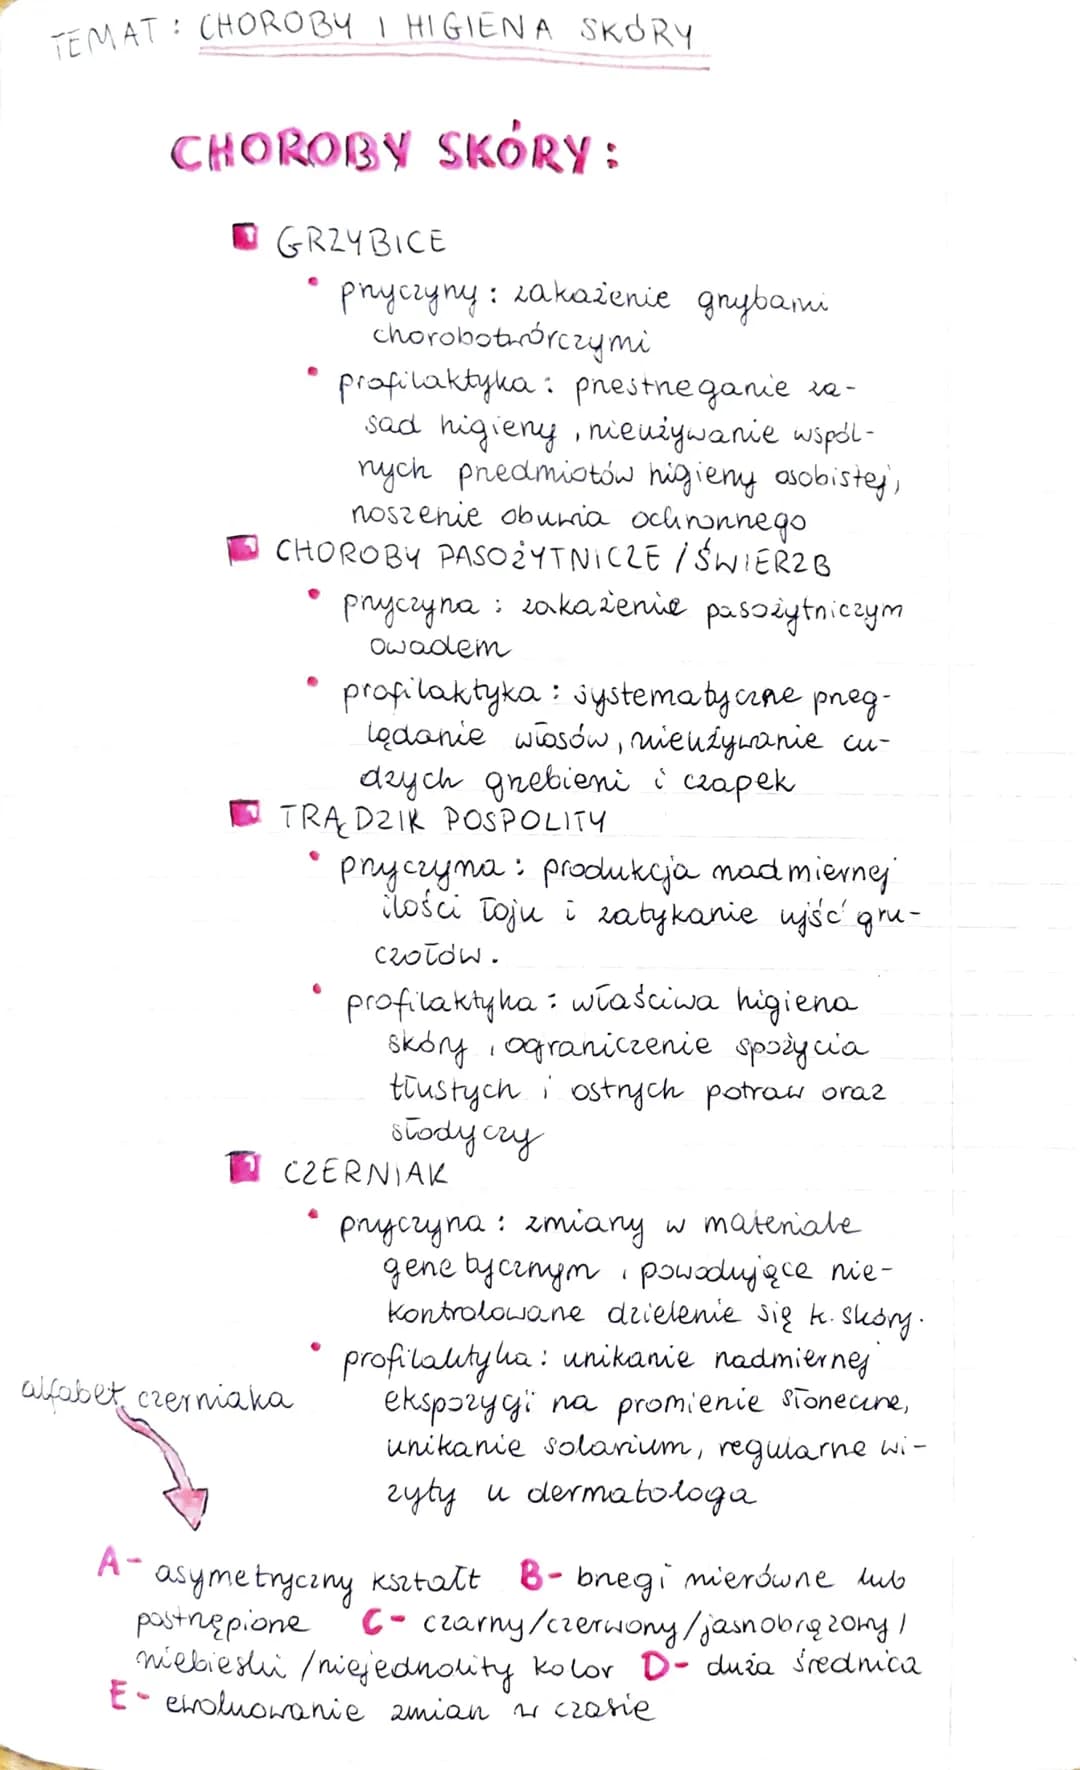 TEMAT: CHOROBY I HIGIENA SKÓRY
CHOROBY SKÓRY:
GRZYBICE
• przyczyny: zakażenie grzybami
chorobotwórczymi
• profilaktyka: przestrzeganie za-
sad higieny, nieużywanie wspól-
nych przedmiotów higieny osobistej,
noszenie obuwia ochronnego
CHOROBY PASOŻYTNICZE / ŚWIERZB
• przyczyna: zakażenie pasożytniczym
owadem
• profilaktyka: systematyczne przeg-
lądanie włosów, nieużywanie cu-
dzych grzebieni i czapek
TRĄDZIK POSPOLITY
• przyczyna: produkcja nadmiernej
ilości łoju i zatykanie ujść gru-
czołów.
• profilaktyka: właściwa higiena
skóry, ograniczenie spożycia
tłustych i ostrych potraw oraz
słodyczy
CZERNIAK
• przyczyna: zmiany w materiale
genetycznym, powodujące nie-
kontrolowane dzielenie się k. skóry.
• profilaktyka: unikanie nadmiernej
alfabet czerniaka
ekspozycji na promienie słoneczne,
unikanie solarium, regularne wi-
zyty u dermatologa
A- asymetryczny kształt B- brzegi nierówne lub
postrzępione C- czarny/czerwony/jasnobrązowy/
niebieski/niejednolity kolor D- duża średnica
E- ewoluowanie zmian w czasie